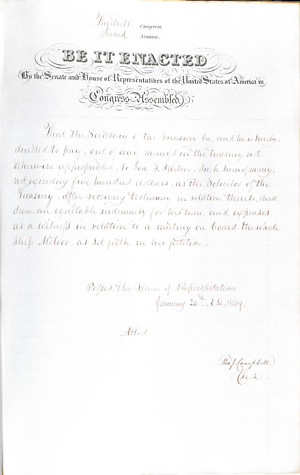 Thirtieth Congress
Second Session.
BE IT ENACTED
By the Senate and House of Representatives of the United States of America in
Congress Assembled,
That the Secretary of the Treasury be, and he is hereby,
directed to pay, out of any money in the treasury not
otherwise appropriated, to Geo. such sum of money,
not exceeding five hundred dollars, as the Solicitor of the
Treasury, after receiving testimony in relation thereto, shall
deem an equitable indemnity for his time and expenses
as a witness in relation to a mutiny on board the whale
ship Meteor, as set forth in his petition.
Passed the House of Representatives
January 20th A.D. 1849.
Attest
Tho. J. Campbell
Clerk